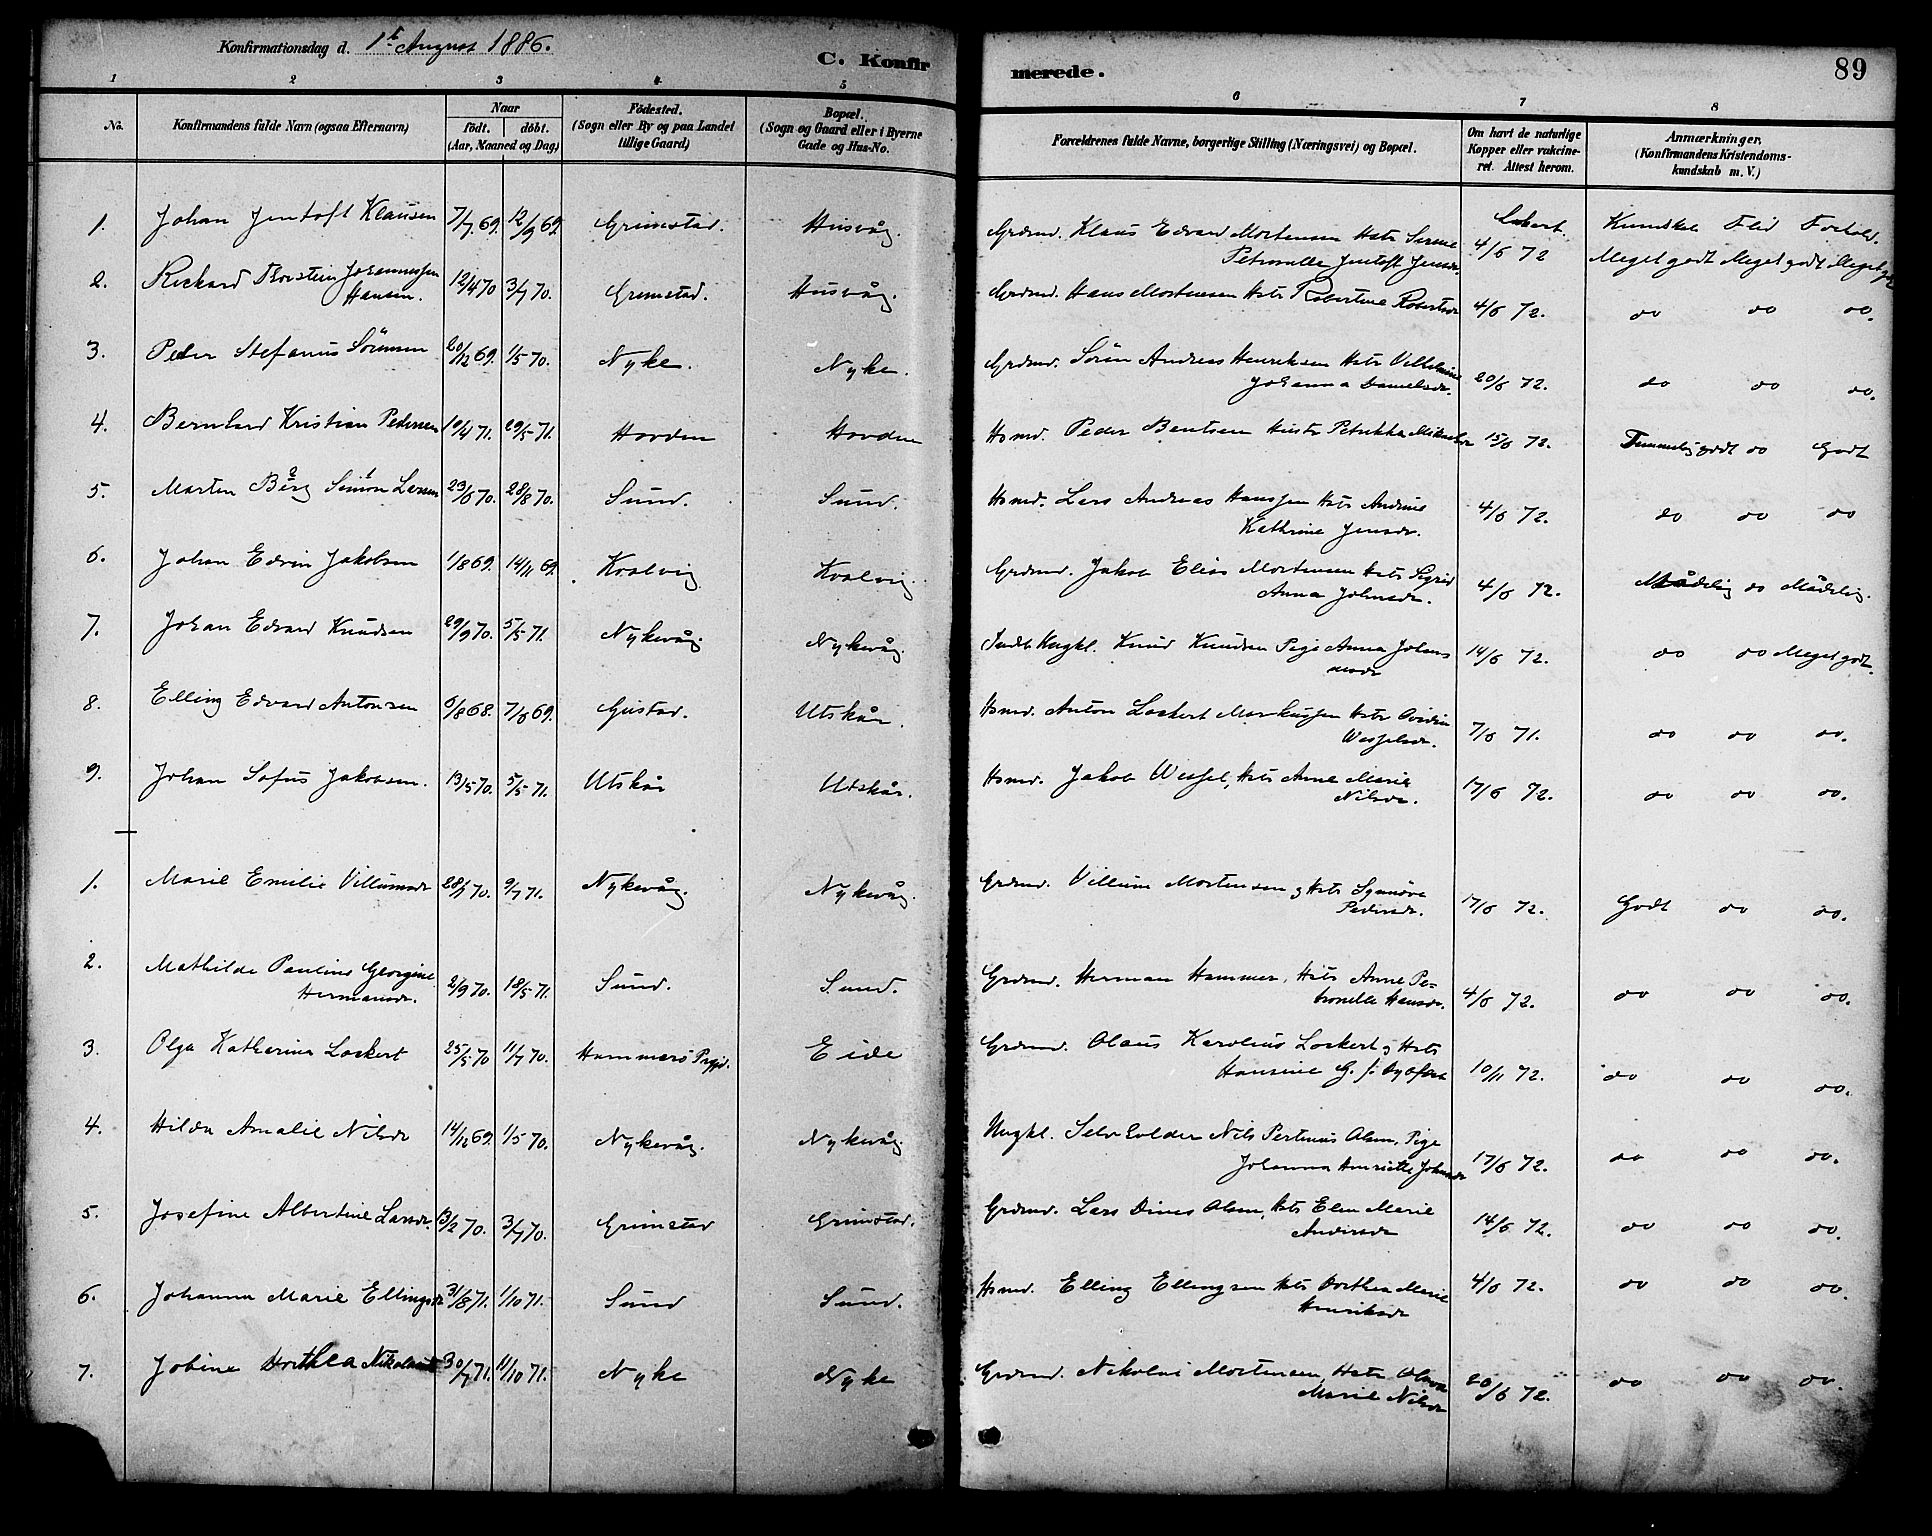 Konfirmationsdag d. 1ste August 1886.
C. Konfirmerede.
89
1 2 3 4 5 6 7 8
No.
Konfirmandens fulde Navn (ogsaa Efternavn)
Naar
födt. döbt.
(Aar, Maaned og Dag)
Födested.
(Sogn eller By og paa Landet
tillige Gaard)
Bopæl.
(Sogn og Gaard eller i Byerne
Gade og Hus-No.
Forældrenes fulde Navne, borgerlige Stilling (Næringsvei) og Bopæl.
Om havt de naturlige
Kopper eller vakcine-
ret. Attest herom.
Anmærkninger.
(Konfirmandens Kristendoms-
kundskab m. V.)
Kundsk. Flid Forhold.
1. Johan Jentoft Klausen 7/7 69. 12/9 69. Grimstad. Husvåg. Grdmd. Klaus Edvard Mortensen Hstr Serine
Petronelle Jentoft Jensdr. 4/6 72 Meget godt Meget godt Meget godt
2. Rickard Thorstein Johannessen
Hansen. 12/4 70 3/7 70. Grimstad. Husvåg. Grdmd. Hans Mortensen Hstr Robertine Robertsdr 4/6 72. do do do.
3. Peder Stefanus Sörensen 20/12 69. 1/5 70. Nyke. Nyke. Grdmd. Sören Andreas Henriksen Hstr Vilhelmine
Johanna Danielsdr. 20/6 72. do do do.
4. Bernhard Kristian Pedersen 10/4 71. 29/5 71. Hovden Hovden Hsmd. Peder Bentsen Hustr Petrikke Mikaelsdr 15/6 72. Temmelig godt do Godt
5. Morten Berg Simon Larsen 23/6 70. 28/8 70. Sund. Sund. Hsmd. Lars Andreas Hanssen Hstr Andrine
Kathrine Jensdr. 4/6 72. do do do
6. Johan Edvin Jakobsen 1/8 69. 14/11 69. Kvalvig Kvalvig. Grdmd. Jakob Elias Mortensen Hstr Sigrid
Anna Johnsdr. 4/6 72. Mådelig do Mådelig.
7. Johan Edvard Knudsen 29/9 70. 5/5 71. Nykevåg Nykevåg. Indb. Ungkl. Knud Knudsen Pige Anna Johans
nesdr 14/6 72. do do Meget godt.
8. Elling Edvard Antonsen 6/8 68. 7/6 69. Gustad. Utskår. Hsmd. Anton Lockert Markussen Hstr
Wesselsdr. 7/6 71. do do do.
9. Johan Sofus Jakobsen. 13/5 70. 5/5 71. Utskår Utskår. Hsmd. Jakob Wessel, Hstr Anne Marie
Nilsdr. 17/6 72. do do do.
1. Marie Emilie Villumsdr 28/7 70. 9/7 71. Nykevåg. Nykevåg. Grdmd. Villum Mortensen og Hstr Synnöve
Pedersdr. 17/6 72. Godt do do.
2. Mathilde Pauline Georgine
Hermansdr. 2/9 70. 18/5 71. Sund. Sund. Grdmd. Herman Hammer, Hstr Anne Pe-
tronelle Hansdr. 4/6 72. do do do.
3. Olga Katherina Lockert 25/5 70 11/7 70. Hammerö Prgjd. Eide Grdmd. Olaus Karolius Lockert og Hstr
Hansine G. f. 10/11 72. do do do.
4. Hilda Amalie Nilsdr 14/12 69. 1/5 70. Nykevåg. Nykevåg Ungkl. Selveolder Nils Pertinus Olsen, Pige
Johanna Henriette Johnsdr 17/6 72. do do do.
5. Josefine Albertine Larsdr. 13/2 70. 3/7 70. Grimstad Grimstad. Grdmd. Lars Dines Olsen, Hstr Elen Marie
Andersdr 14/6 72. do do do.
6. Johanna Marie Ellingsdr 31/8 71. 1/10 71. Sund Sund. Hsmd. Elling Ellingsen Hstr Dorthea Marie
Henriksdr 4/6 72. do do do.
7. Jobine Dorthea Nikolaisdr 30/7 71. 11/10 71. Nyke Nyke Grdmd. Nikolai Mortensen, Hstr Olava
Marie Nilsdr 20/6 72. do do do.